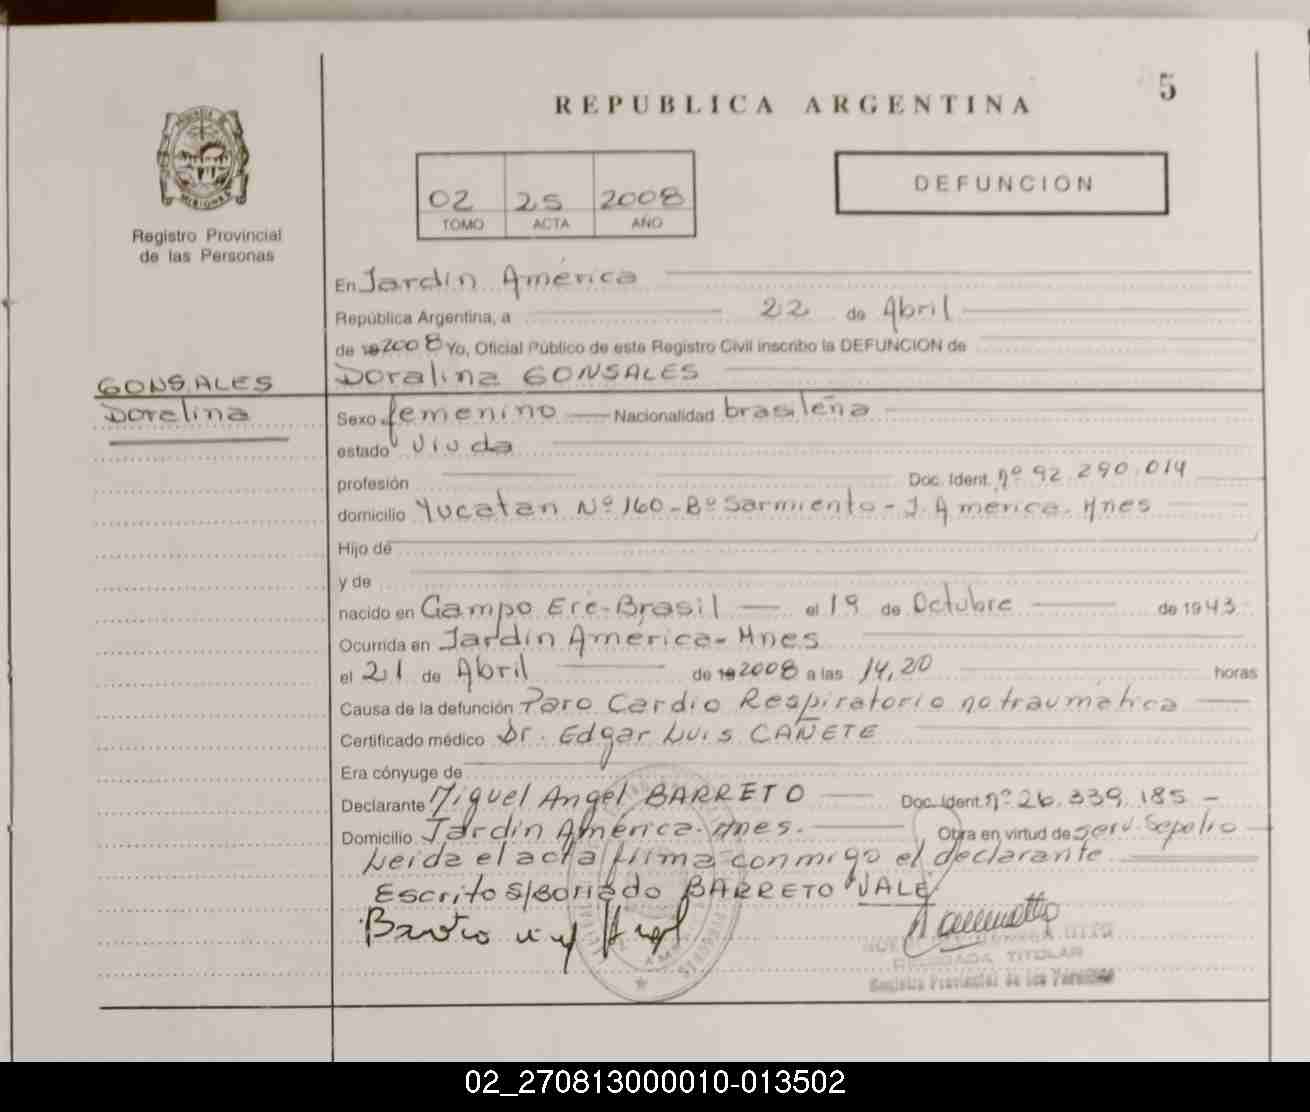 5
REPUBLICA ARGENTINA
02 25 2008
TOMO ACTA AÑO
DEFUNCION
Registro Provincial
de las Personas
En Jardín América
República Argentina, a 22 de Abril
de 19 2008 Yo, Oficial Público de este Registro Civil inscribo la DEFUNCION de
GONSALES Doralina GONSALES
Doralina
Sexo femenino Nacionalidad brasileña
estado viuda
profesión Doc. Ident. nº 92.290.014
domicilio Yucatan Nº 160-Bº Sarmiento-J. América. Mnes
Hijo de
y de
nacido en Campo Eré-Brasil el 19 de Octubre de 1943
Ocurrida en Jardín América-Mnes
el 21 de Abril de 19 2008 a las 14,20 horas
Causa de la defunción Paro Cardio Respiratorio no traumática
Certificado médico Dr. Edgar Luis CAÑETE
Era cónyuge de
Declarante Miguel Angel BARRETO Doc. Ident. nº 26.339.185-
Domicilio Jardín América. Mnes. Obra en virtud de serv. Sepelio
Leida el acta firma conmigo el declarante
Escrito s/borrado BARRETO VALE
Barreto Angel
TITULAR
Registro Provincial de las Personas
02_270813000010-013502